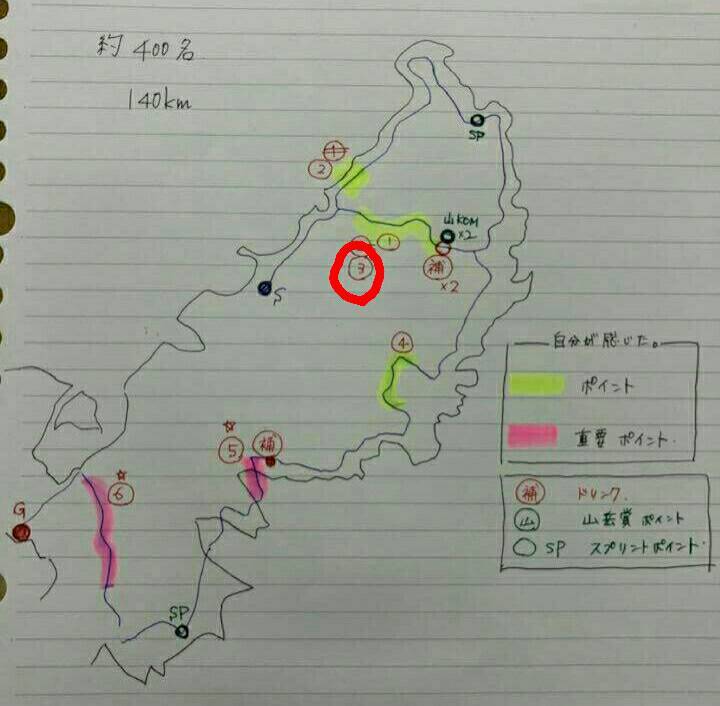 約 400名
140km
SP
①
②
山 KOM
×2
①
③
補
×2
S
④
自分が感じた。
ポイント
重要 ポイント.
☆
⑤
補
☆
⑥
G
補 ドリンク.
山 山岳賞 ポイント
○ SP スプリントポイント.
SP